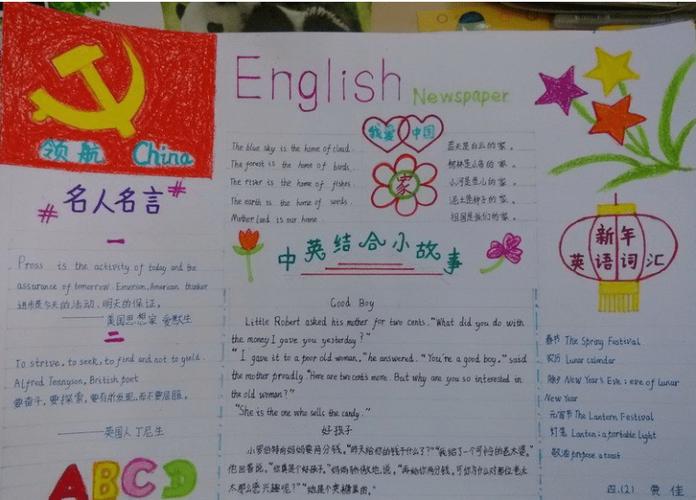 领航 China
English Newspaper
我爱 中国
家
The blue sky is the home of cloud.
The forest is the home of birds.
The river is the home of fishes.
The earth is the home of seeds.
Motherland is our home.
蓝天是白云的家。
树林是小鸟的家。
小河是鱼儿的家。
泥土是种子的家。
祖国是我们的家。
# 名人名言 #
一
Press is the activity of today and the
assurance of tomorrow. Emerson, American thinker
进步是今天的活动,明天的保证。
——美国思想家 爱默生
二
To strive, to seek, to find and not to yield.
Alfred Tennyson, British poet
要奋斗,要探索,要有所发现,而不要屈服。
——英国人丁尼生
ABCD
中英结合小故事
Good Boy
Little Robert asked his mother for two cents. "What did you do with
the money I gave you yesterday?"
"I gave it to a poor old woman," he answered. "You're a good boy," said
the mother proudly. "Here are two cents more. But why are you so interested in
the old woman?"
"She is the one who sells the candy."
好孩子
小罗伯特向妈妈要两分钱。"昨天给你的钱干什么了?" "我给了一个可怜的老太婆,"
他回答说。"你真是个好孩子,"妈妈骄傲地说,"再给你两分钱,可你为什么对那位老太
太那么感兴趣呢?" "她是个卖糖果的。"
新年
英语词汇
春节 The Spring Festival
农历 lunar calendar
除夕 New Year's Eve; eve of Lunar
New Year
元宵节 The Lantern Festival
灯笼 Lanten: a portable light
敬酒 propose a toast
四.(2) 黄佳